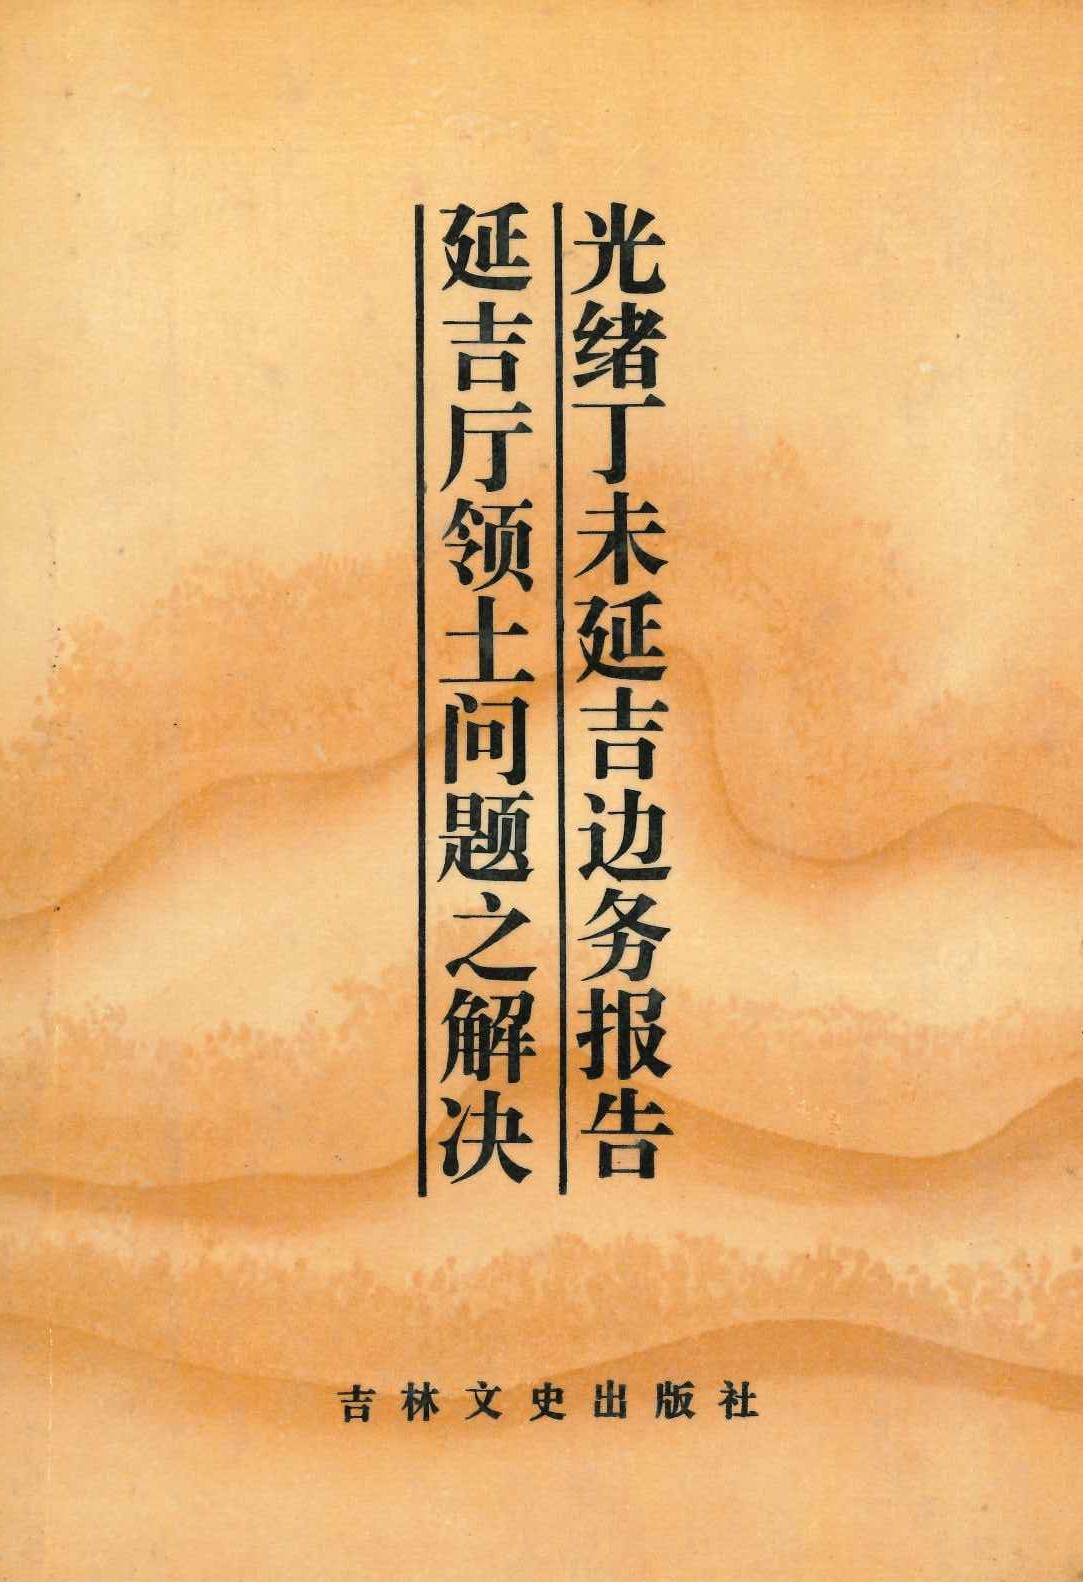 光绪丁未延吉边务报告
延吉厅领土问题之解决
吉林文史出版社